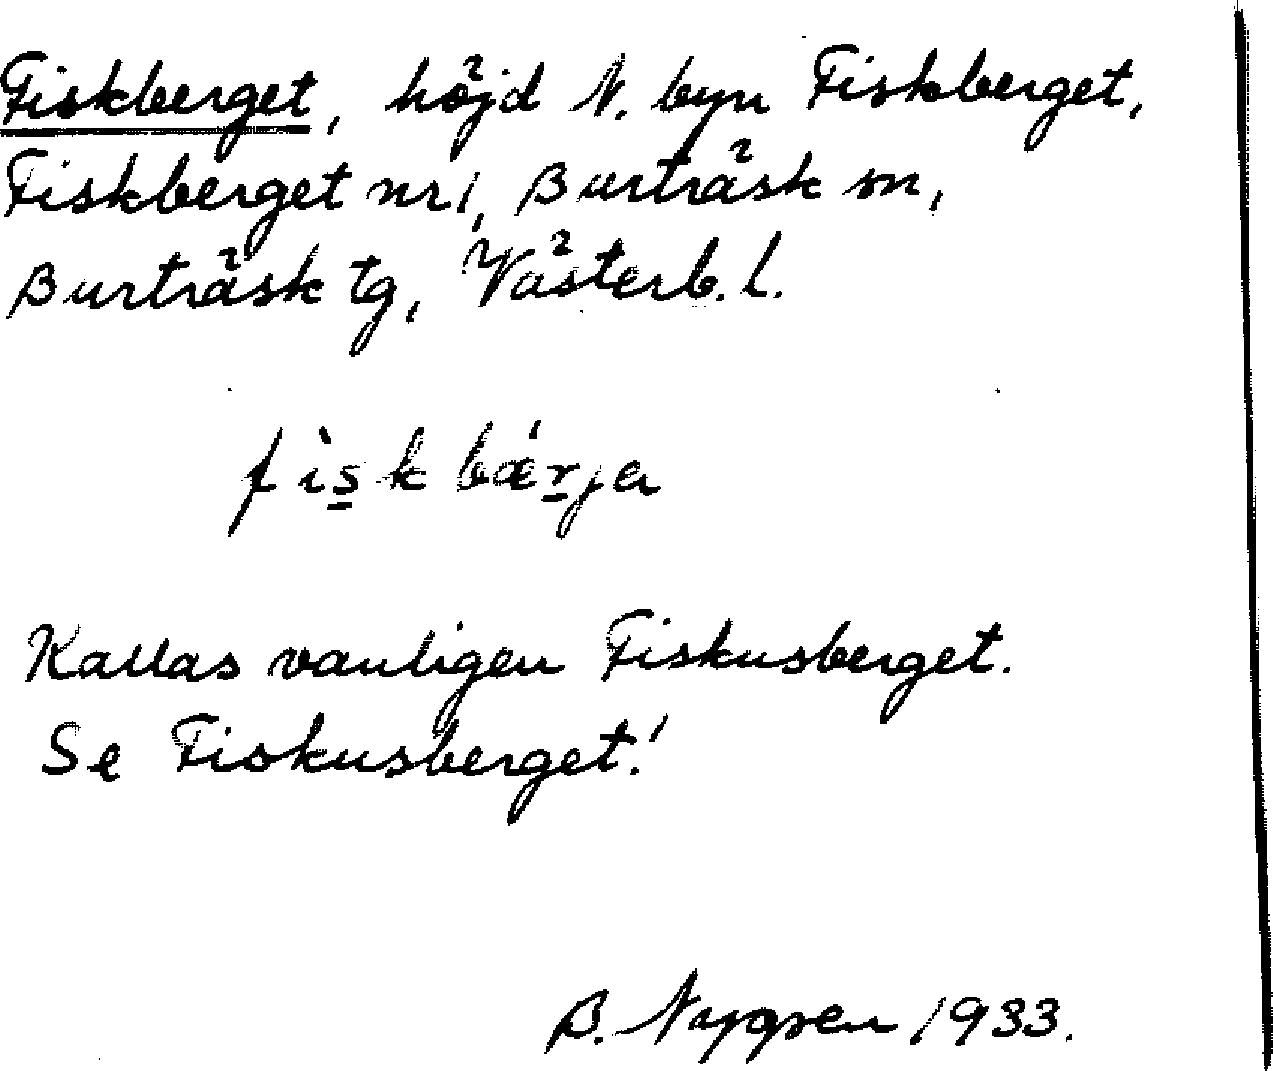 Fiskberget, höjd N. byn Fiskberget,
Fiskberget nr 1, Burträsk sn,
Burträsk tg, Västerb. l.
fìsk bǽrja
Kallas vanligen Fiskusberget.
Se Fiskusberget!
B. Nygren 1933.